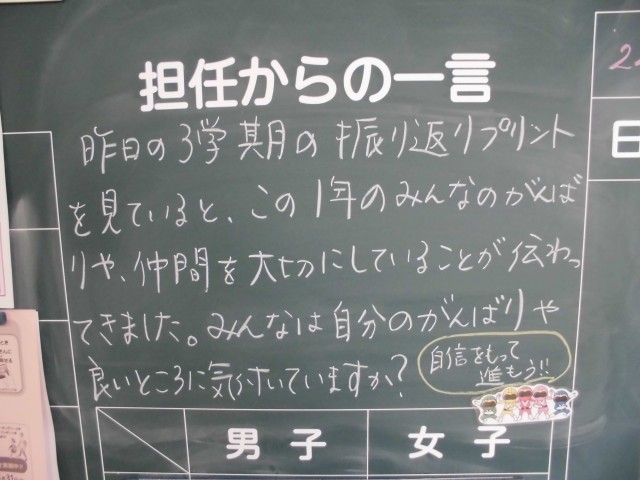 担任からの一言
昨日の3学期の振り返りプリント
を見ていると、この1年のみんなのがんば
りや、仲間を大切にしていることが伝わっ
てきました。みんなは自分のがんばりや
良いところに気付いていますか?
自信をもって
進もう!!
男子
女子
日